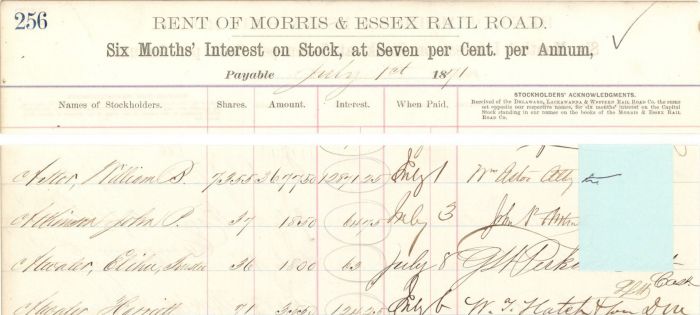 256
RENT OF MORRIS & ESSEX RAIL ROAD.
Six Months' Interest on Stock, at Seven per Cent. per Annum,
Payable July 1st 1871
Names of Stockholders. Shares. Amount. Interest. When Paid.
STOCKHOLDERS' ACKNOWLEDGMENTS.
Received of the DELAWARE, LACKAWANNA & WESTERN RAIL ROAD Co. the sums
set opposite our respective names, for six months' interest on the Capital
Stock standing in our names on the books of the MORRIS & ESSEX RAIL
ROAD Co.
Astor, William B. 7,355 367750 July 1 Wm Astor Atty
Atkinson John P. 37 1850 6475 July 3 John P.
Atwater, Elihu, 36 1800 63 July 8
Cash
Atwater Harriett 71 12425 July 6 W. T. Hatch & Son